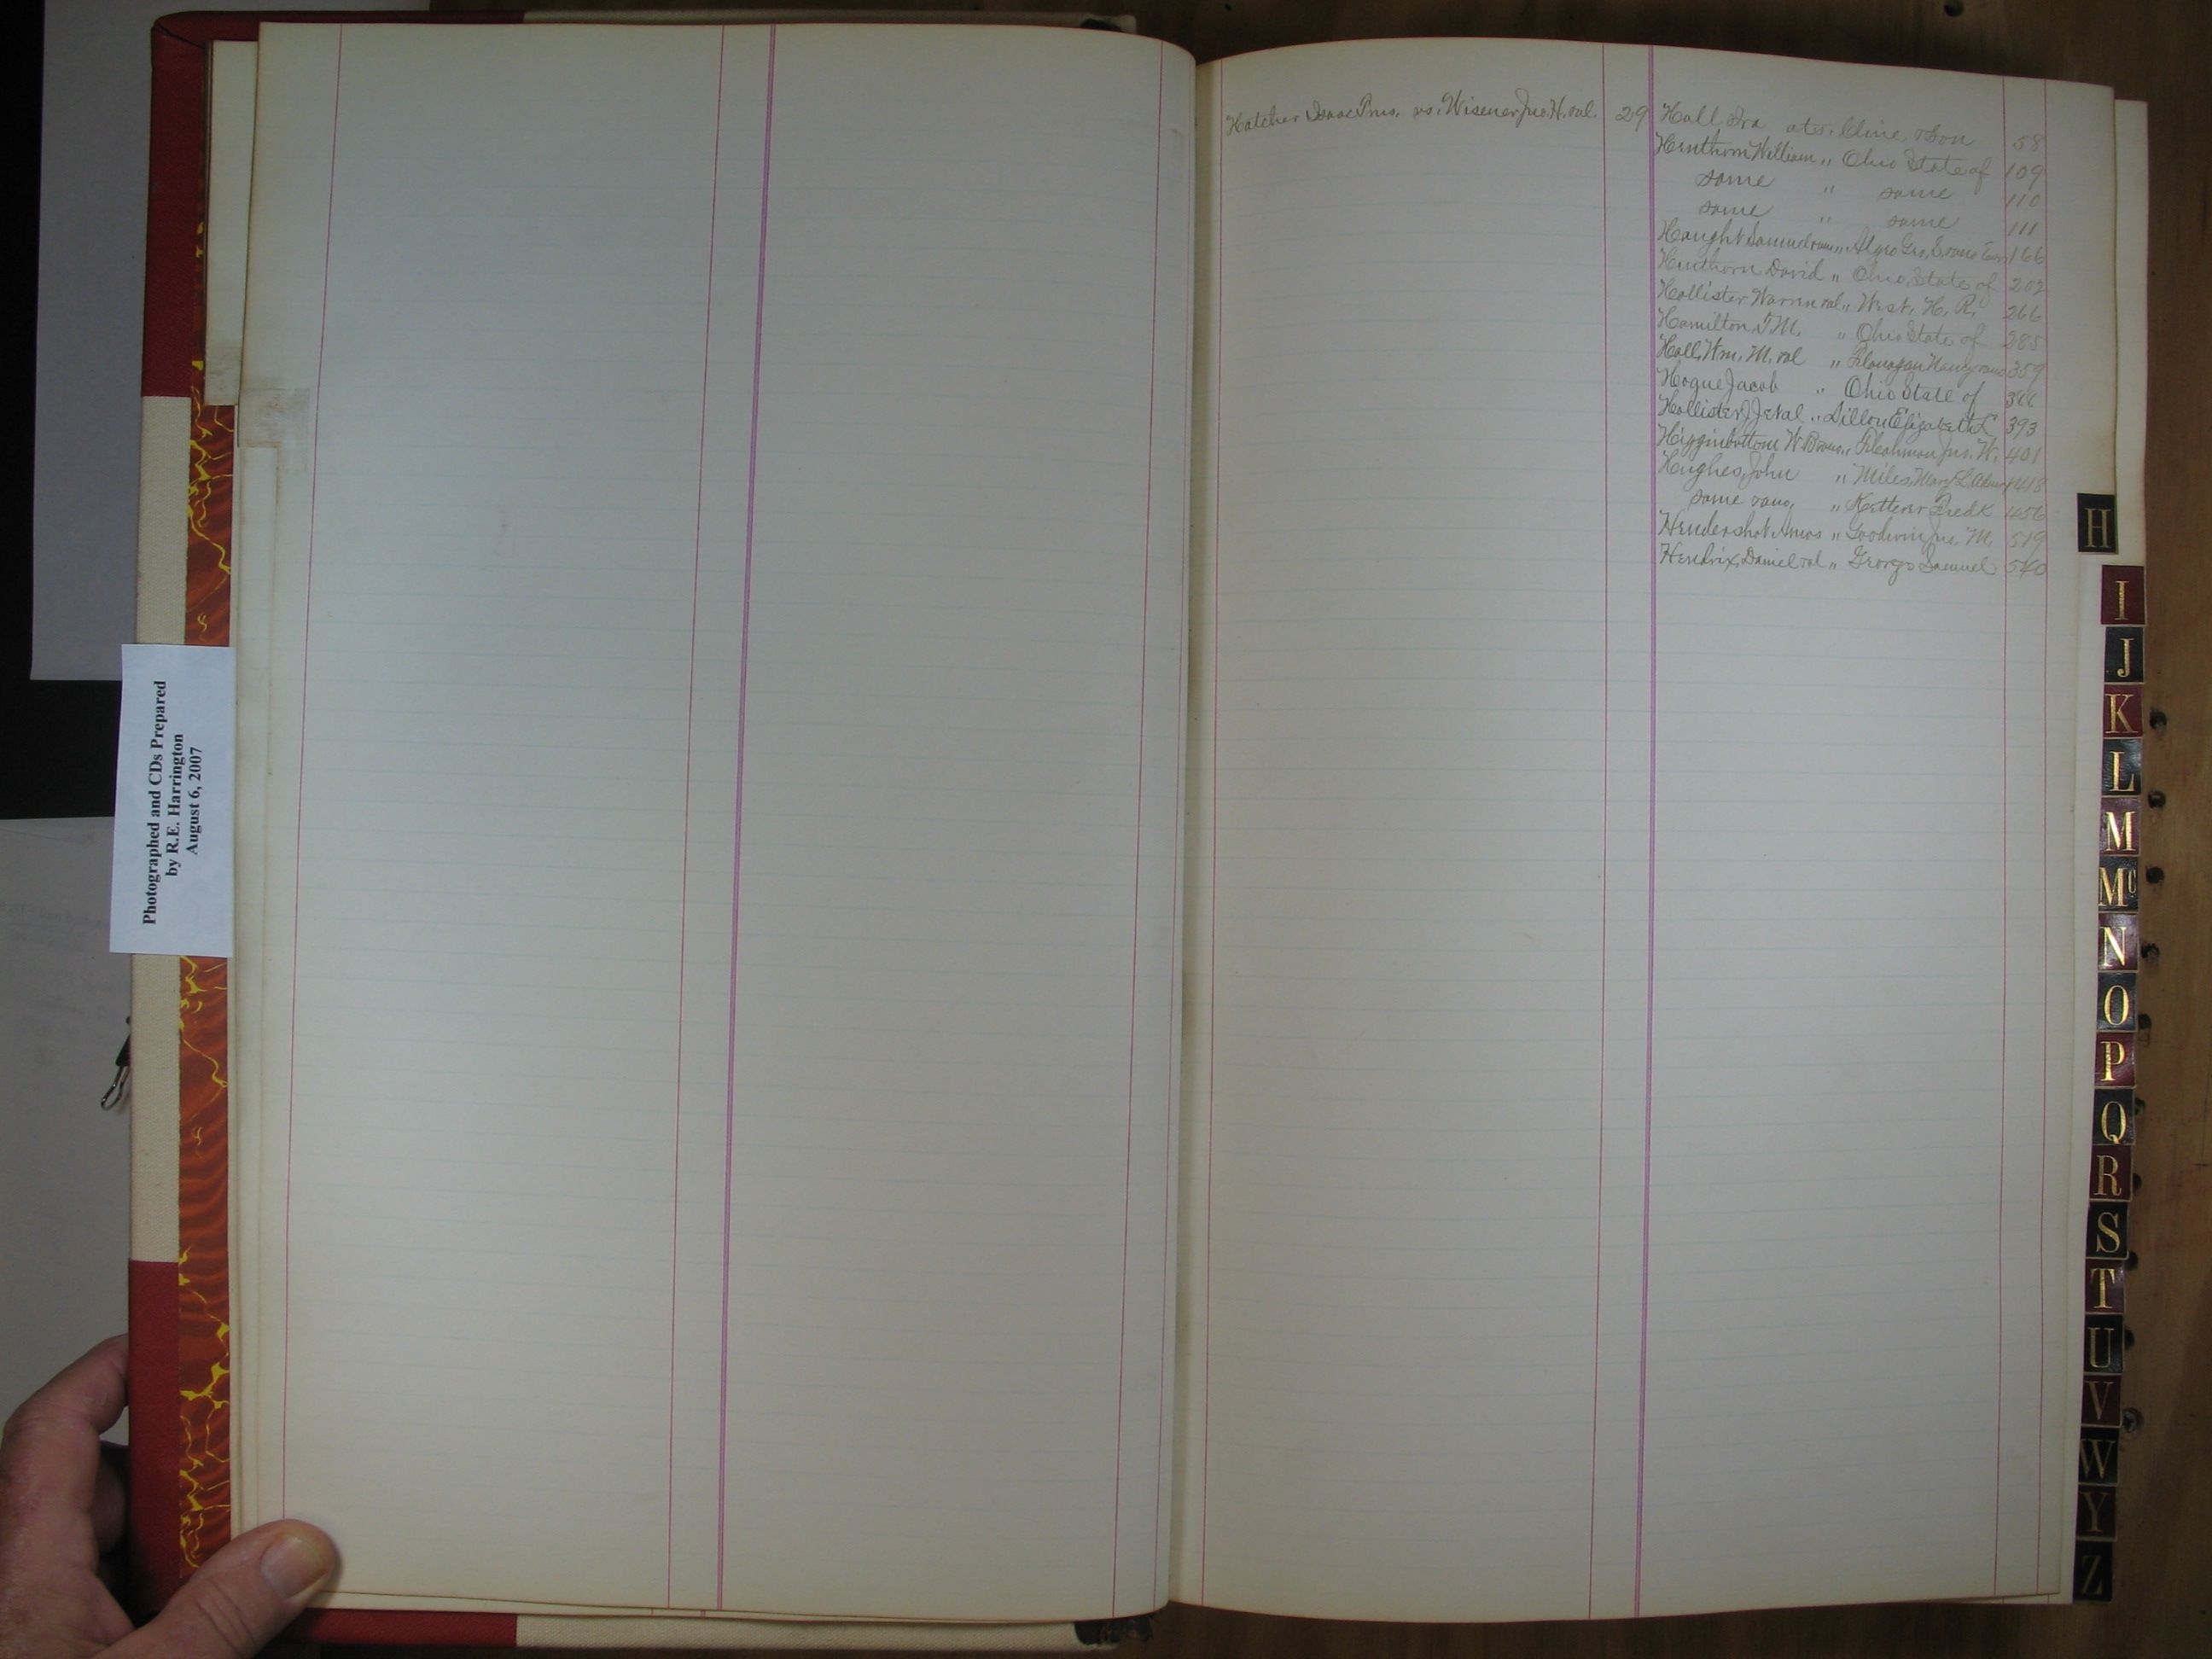 Photographed and CDs Prepared
by R.E. Harrington
August 6, 2007
Hatcher Isaac vs. Wisener Jno. H. 29
Hall Ira ats. Cline & Son 58
Henthorn William " Ohio State of 109
same " same 110
same " same 111
Haught Samuel " Geo. 166
Henthorn David " Ohio, State of 202
Hollister Warren " West, H. R. 266
Hamilton, T.M. " Ohio State of 285
Hall, Wm. M. " Flanagan 359
Hogue Jacob " Ohio State of
Hollister, " Dillon Elizabeth 393
Higginbottom W. " Fleahman Jno. W. 401
Hughes, John " Miles, Mary L. 418
same " Ketterer Fredk 456
Hendershot Amos " Goodwin Jno. M. 519
Hendrix, Daniel " George Samuel 540
H
I
J
K
L
M
Mc
N
O
P
Q
R
S
T
U
V
W
Y
Z